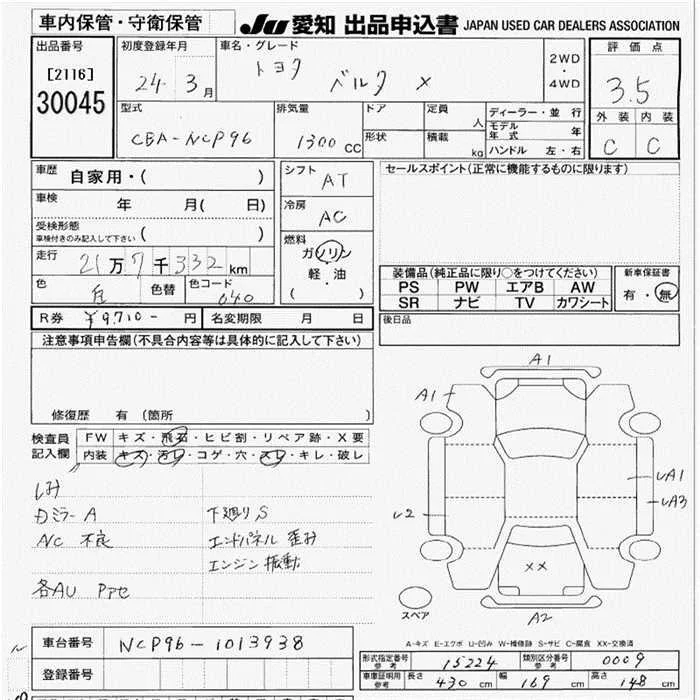 車内保管・守衛保管
JU 愛知 出品申込書 JAPAN USED CAR DEALERS ASSOCIATION
出品番号
[2116]
30045
初度登録年月
24 3月
車名・グレード
トヨタ
ベルタ X
2WD
・
4WD
評価点
3.5
外装 内装
C C
型式
CBA-NCP96
排気量
1300 CC
ドア
形状
定員
人
積載
kg
ディーラー・並行
モデル年式 年
ハンドル 左・右
車歴 自家用・( )
車検 年 月( 日)
受検形態
車検付きのみ記入して下さい ( )
走行 21万7千332km
色 白 色替 色コード 040
シフト
AT
冷房
AC
燃料
ガソリン
軽・油
( )
セールスポイント(正常に機能するものに限ります)
装備品(純正品に限り○をつけてください)
PS PW エアB AW
SR ナビ TV カワシート
新車保証書
有・無
R券 ¥9,710- 円 名変期限 月 日
後日品
注意事項申告欄(不具合内容等は具体的に記入して下さい)
修復歴 有(箇所 )
検査員
記入欄
FW キズ・飛石・ヒビ割・リペア跡・X要
内装 キズ・汚レ・コゲ・穴・スレ・キレ・破レ
シミ
カミラー A 下廻り S
A/C 不良 エンドパネル 歪み
エンジン振動
各AU Pアセ
A1
A1
UA1
UA3
U2
XX
A2
スペア
A-キズ E-エクボ U-凹み W-補修跡 S-サビ C-腐食 XX-交換済
車台番号 NCP96-1013938
登録番号
形式指定番号
参考
15224
類別区分番号
参考
0009
車庫証明用
参考
長さ 430 cm 幅 169 cm 高さ 148 cm